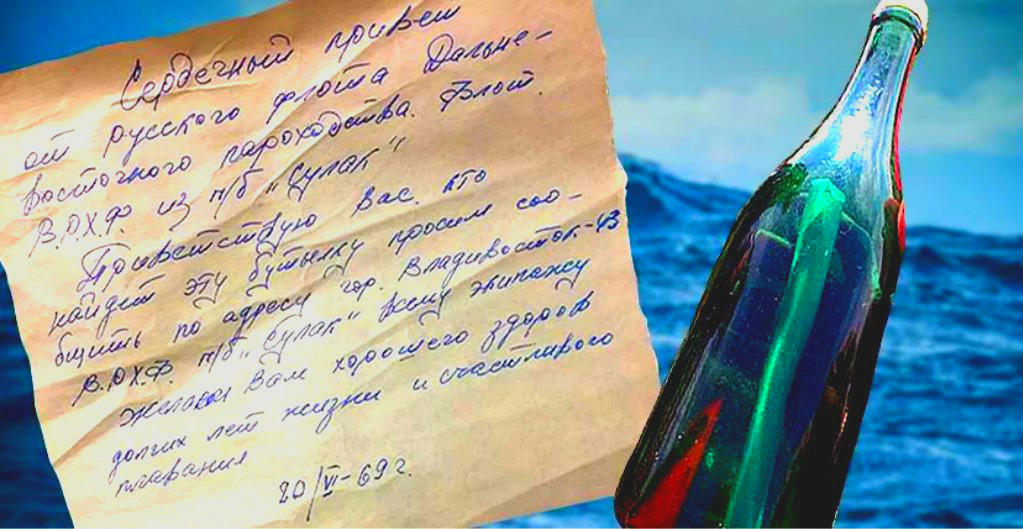 Сердечный привет
от русского флота Дальне-
восточного пароходства. Флот.
В.О.Х.Ф. из п/б „Сулак"
Приветствую Вас. кто
найдет эту бутылку просим соо-
бщить по адресу гор. Владивосток-43
В.О.Х.Ф. п/б „Сулак" всему экипажу
желаем Вам хорошего здоров
долгих лет жизни и счастливого
плавания
20/VI-69г.